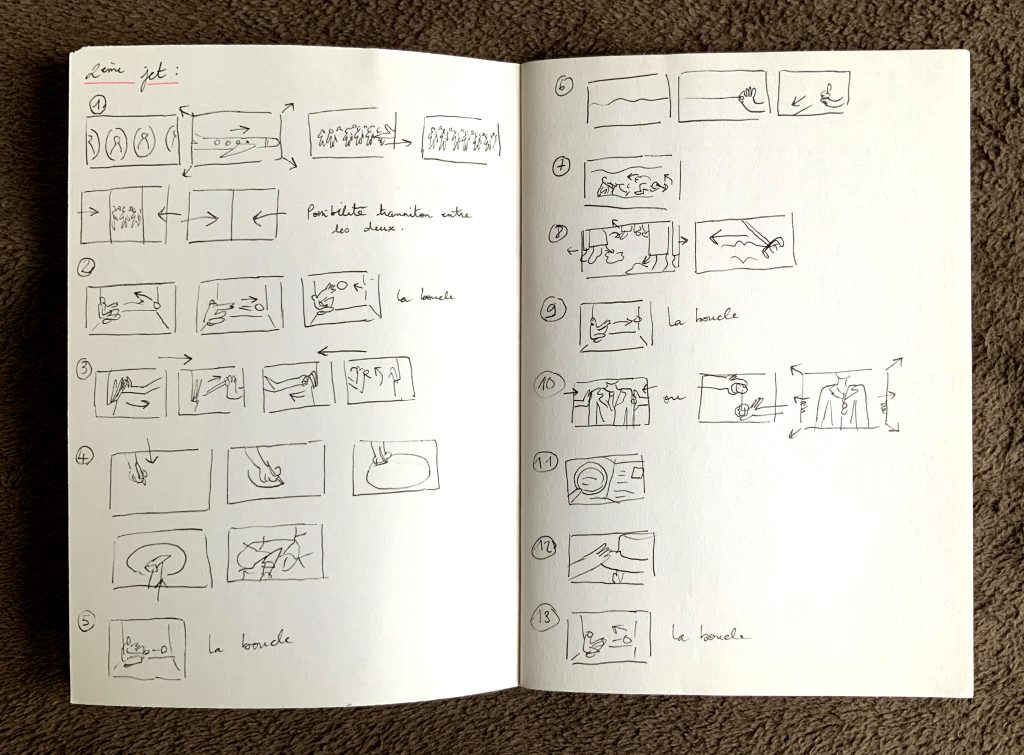 2ème jet :
1
Possibilité transition entre
les deux.
2
La boucle
3
4
5
La boucle
6
7
8
9
La boucle
10
ou
11
12
13
La boucle